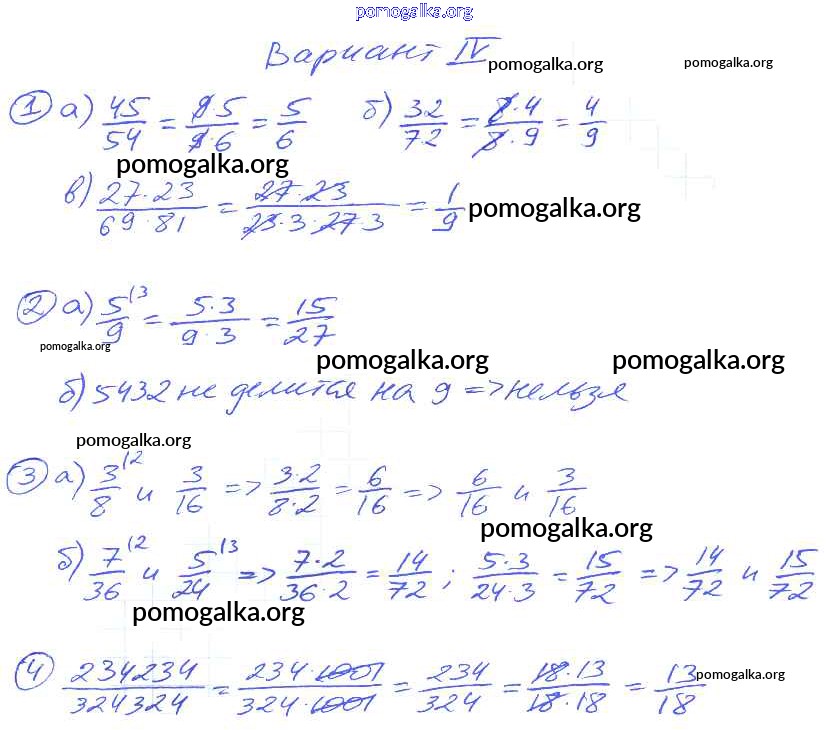 pomogalka.org
Вариант IV pomogalka.org pomogalka.org
① а) 45/54 = 9·5/9·6 = 5/6 б) 32/72 = 8·4/8·9 = 4/9
pomogalka.org
в) 27·23/69·81 = 27·23/23·3·27·3 = 1/9 pomogalka.org
② а) 5/9 |3 = 5·3/9·3 = 15/27
pomogalka.org
pomogalka.org pomogalka.org
б) 5432 не делится на 9 => нельзя
pomogalka.org
③ а) 3/8 |2 и 3/16 => 3·2/8·2 = 6/16 => 6/16 и 3/16
pomogalka.org
б) 7/36 |2 и 5/24 |3 => 7·2/36·2 = 14/72 ; 5·3/24·3 = 15/72 => 14/72 и 15/72
pomogalka.org
④ 234234/324324 = 234·1001/324·1001 = 234/324 = 18·13/18·18 = 13/18 pomogalka.org